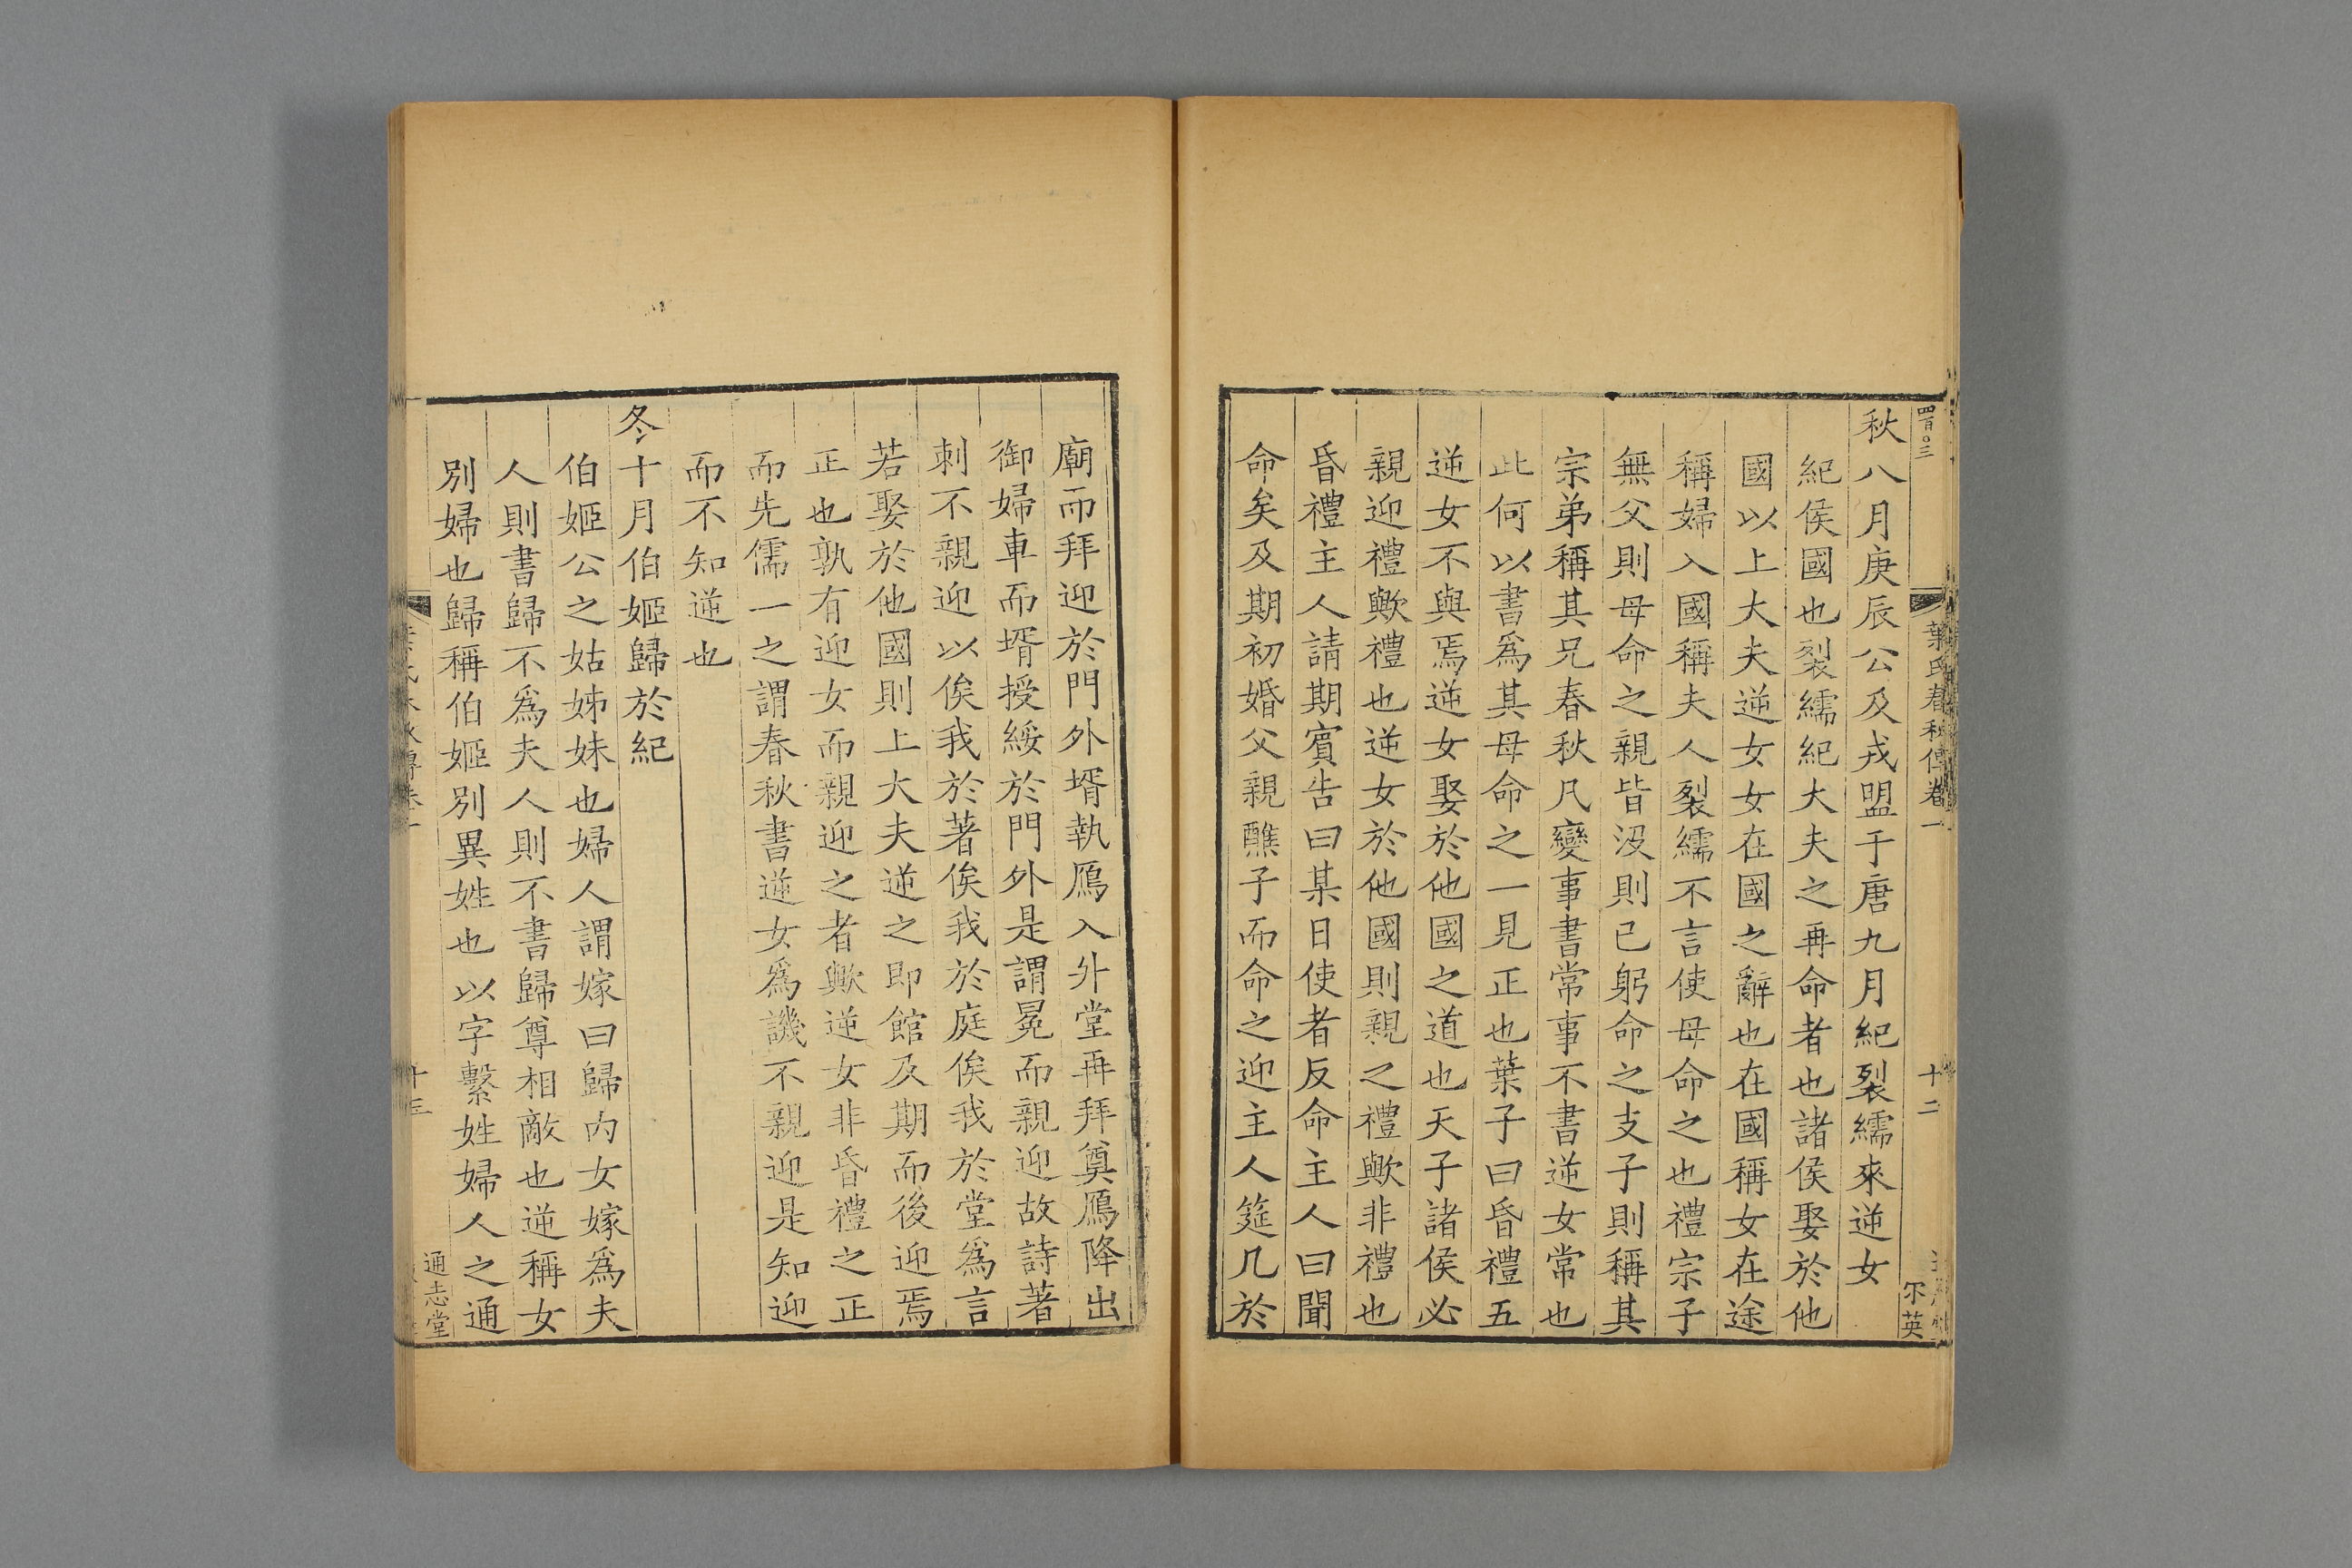 四百〇三
葉氏春秋傳卷一
十二
尔英
秋八月庚辰公及戎盟于唐九月紀裂繻來逆女
紀侯國也裂繻紀大夫之再命者也諸侯娶於他
國以上大夫逆女女在國之辭也在國稱女在途
稱婦入國稱夫人裂繻不言使母命之也禮宗子
無父則母命之親皆沒則已躬命之支子則稱其
宗弟稱其兄春秋凡變事書常事不書逆女常也
此何以書爲其母命之一見正也葉子曰昏禮五
逆女不與焉逆女娶於他國之道也天子諸侯必
親迎禮歟禮也逆女於他國則親之禮歟非禮也
昏禮主人請期賓告曰某日使者反命主人曰聞
命矣及期初婚父親醮子而命之迎主人筵几於
廟而拜迎於門外壻執鴈入升堂再拜奠鴈降出
御婦車而壻授綏於門外是謂冕而親迎故詩著
刺不親迎以俟我於著俟我於庭俟我於堂爲言
若娶於他國則上大夫逆之即館及期而後迎焉
正也孰有迎女而親迎之者歟逆女非昏禮之正
而先儒一之謂春秋書逆女爲譏不親迎是知迎
而不知逆也
冬十月伯姬歸於紀
伯姬公之姑姊妹也婦人謂嫁曰歸內女嫁爲夫
人則書歸不爲夫人則不書歸尊相敵也逆稱女
別婦也歸稱伯姬別異姓也以字繫姓婦人之通
十三
通志堂